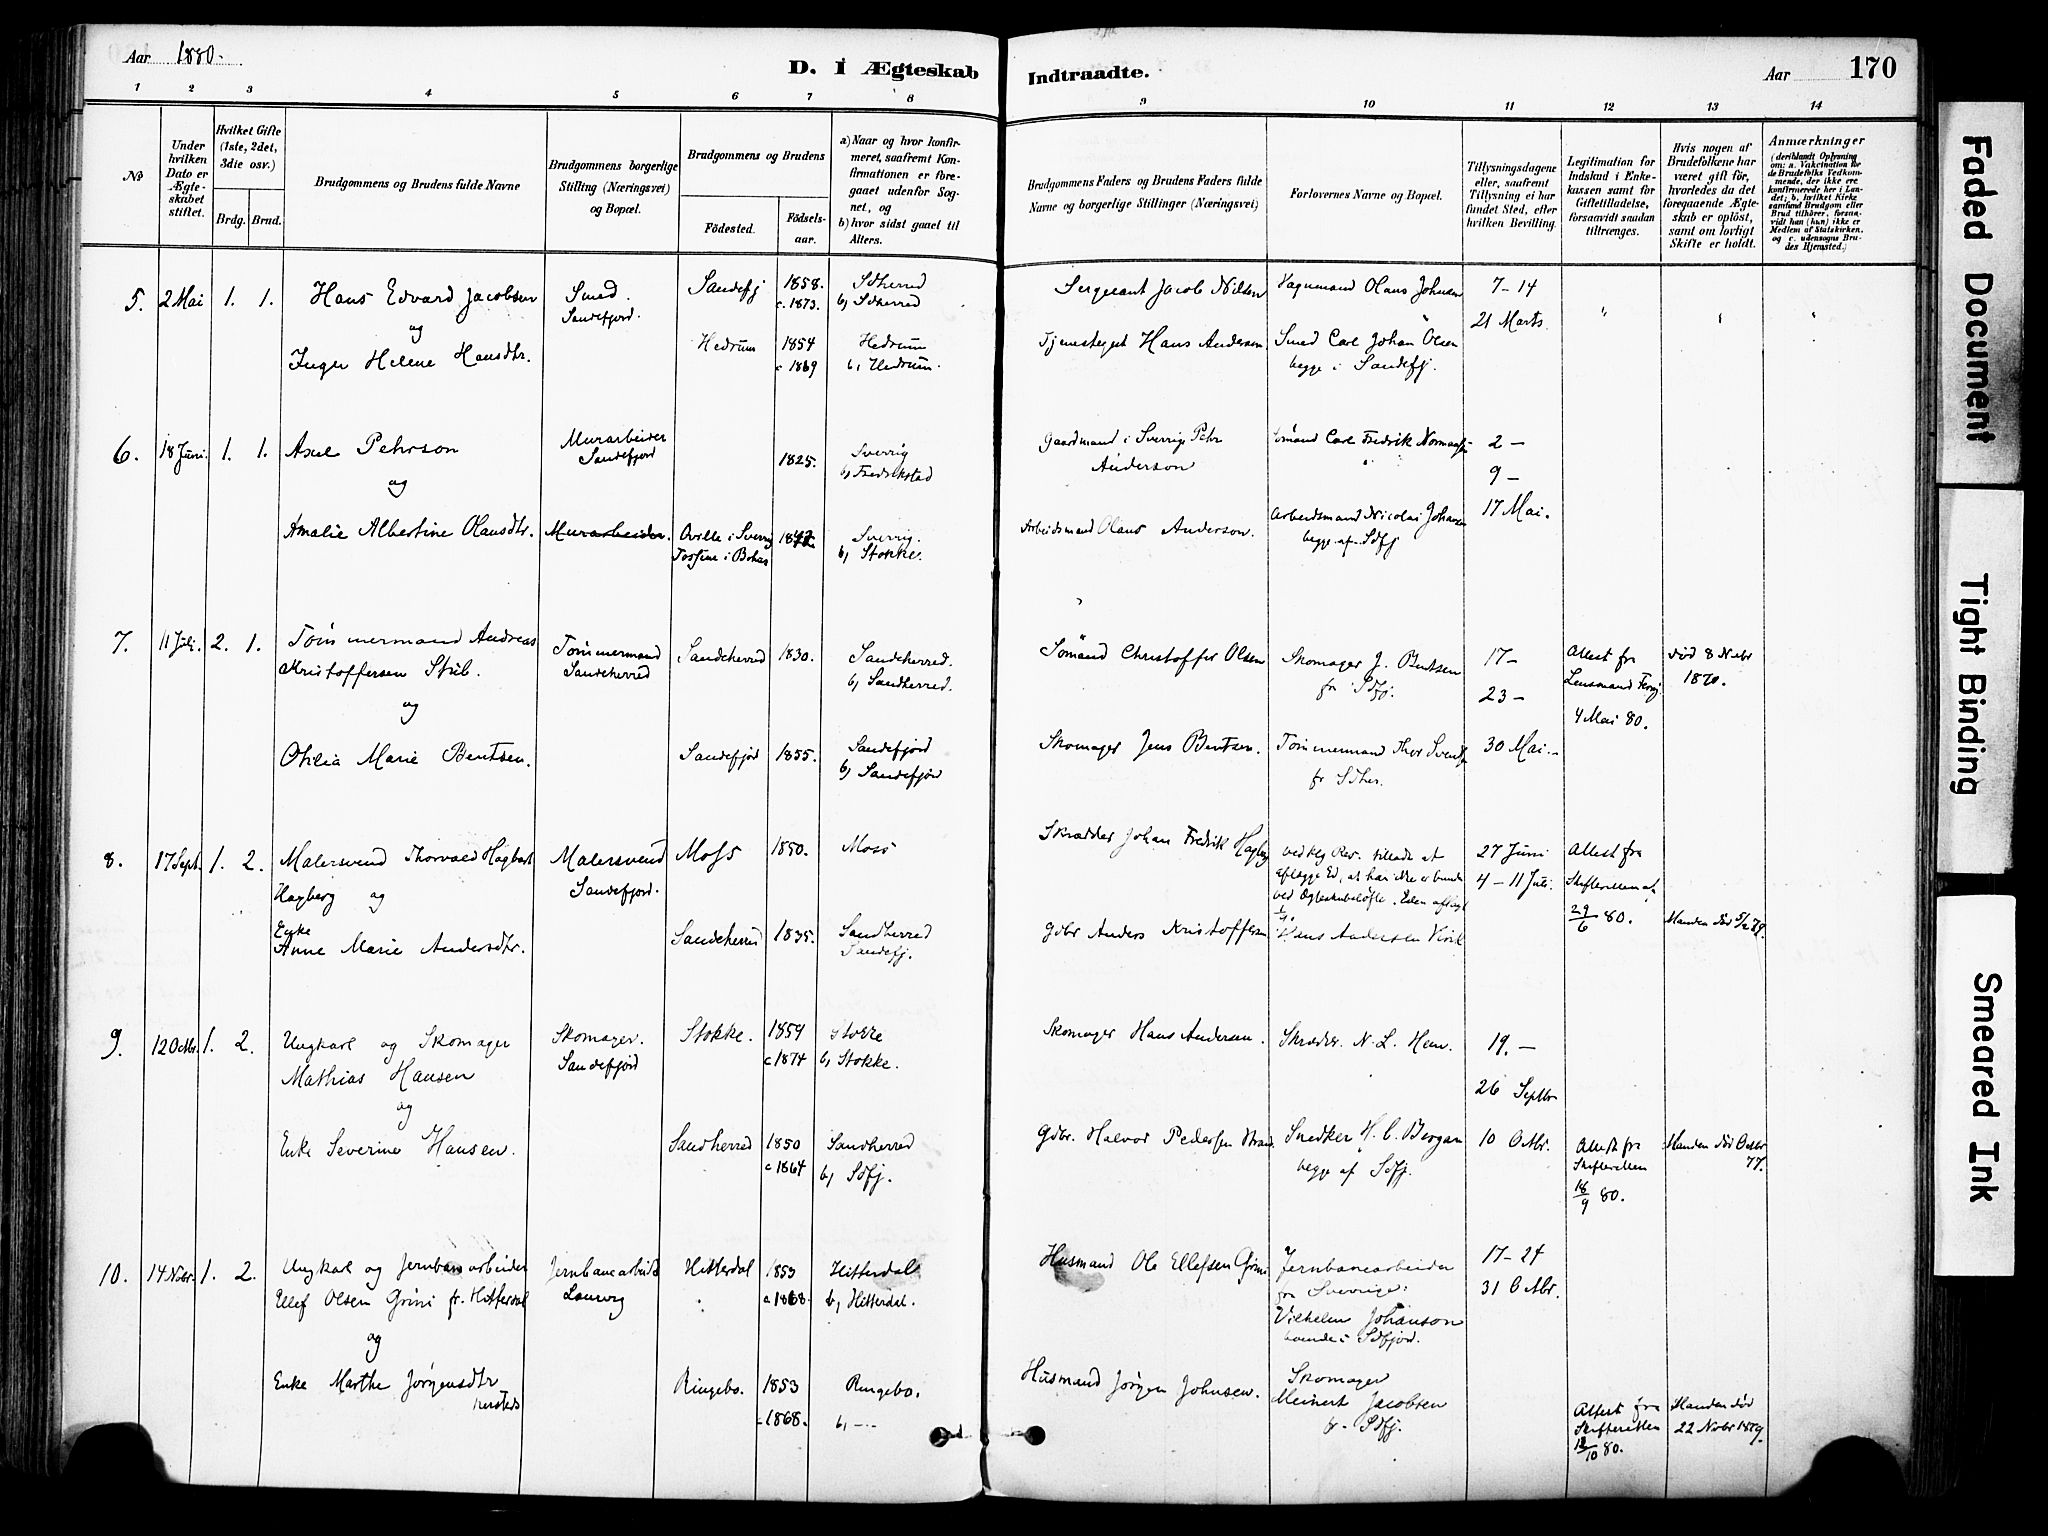 Aar 1880.
D. i Ægteskab
Indtraadte.
Aar 170
1 2 3 4 5 6 7 8 9 10 11 12 13 14
No
Under hvilken Dato er Ægteskabet stiftet.
Hvilket Gifte (1ste, 2det, 3die osv.)
Brdg. Brud.
Brudgommens og Brudens fulde Navne
Brudgommens borgerlige Stilling (Næringsvei) og Bopæl.
Brudgommens og Brudens
Fødested.
Fødselsaar.
a) Naar og hvor konfirmeret, saafremt Konfirmationen er foregaaet udenfor Sognet, og
b) hvor sidst gaaet til Alters.
Brudgommens Faders og Brudens Faders fulde Navne og borgerlige Stillinger (Næringsvei)
Forlovernes Navne og Bopæl.
Tillysningsdagene eller, saafremt Tillysning ei har fundet Sted, efter hvilken Bevilling.
Legitimation for Indskud i Enkekassen samt for Giftetilladelse, forsaavidt saadan tiltrænges.
Hvis nogen af Brudefolkene har været gift før, hvorledes da det foregaaende Ægteskab er opløst, samt om lovligt Skifte er holdt.
Anmærkninger
(deriblandt Oplysning om: a. Vakcination for de Brudefolks Vedkommende, der ikke ere konfirmerede her i Landet; b. hvilket Kirkesamfund Brudgom eller Brud tilhører, forsaavidt han (hun) ikke er Medlem af Statskirken, og c. udensogns Brudes Hjemsted.)
5. 2 Mai 1. 1. Hans Edvard Jacobsen
og
Inger Helene Hansdtr.
Smed.
Sandefjord.
Sandefj 1858. c. 1873. Sdherred
b, Sdherred
Hedrum 1854 c 1869 Hedrum
b, Hedrum.
Sergeant Jacob Nilsen
Tjenestegut Hans Andersen
Vognmand Olaus Johnsen
Smed Carl Johan Olsen
begge i Sandefj.
7-14
21 Marts
6. 18 Juni. 1. 1. Axel Pehrson
og
Amalie Albertine Olausdtr.
Murarbeider
Sandefjord
Murarbeider.
1825. Sverrig
b, Fredrikstad
Qville i Sverrig
Tossene i Bohus
Sverrig.
b, Stokke.
Gaardmand i Sverrige Pehr
Anderson
Arbeidsmand Olaus Anderson.
Sömand Carl Fredrik
Arbeidsmand Nicolai Johansen
begge af Sdfj
2 -
9 -
17 Mai.
7. 11 Juli. 2. 1. Tömmermand Andreas
Kristoffersen Stub.
og
Othilia Marie Bentsen.
Tömmermand
Sandeherred
Sandeherred 1830. Sandeherred.
b, Sandherred.
Sandefjord 1855. Sandefjord
b, Sandefjord
Sömand Christoffer Olsen
Skomager Jens Bentsen.
Skomager J. Bentsen
fr Sdfj.
Tömmermand Thor
fr Sdher.
17-
23-
30 Mai.-
Attest fra
Lensmand
4 Mai 80.
död 8 Nvbr
1870.
8. 17 Sept. 1. 2. Malersvend Thorvald Hagbart
Hagberg og
Enke
Anne Marie Andersdtr.
Malersvend
Sandefjord.
Moss 1850. Moss
Sandeherred 1835. Sandherred
Sandefj.
Skrædder Johan Fredrik Hagberg
Gdbr Anders Kristoffersen
ved Res. tilladt at
aflægge Ed, at han ikke er bunden
ved Ægteskabsløfte. Eden aflagt
Hans Andersen Virik
27 Juni
4-11 Juli.
Attest fra
Skifteretten af
29/6 80.
Manden död 5/2 79.
9. 12 Octbr. 1. 2. Ungkarl og Skomager
Mathias Hansen
og
Enke Severine Hansen.
Skomager.
Sandefjord
Stokke. 1859 c 1874 Stokke
b, Stokke.
Sandherred 1850 c 1864 Sandherred
b, Sdfj.
Skomager Hans Andersen.
Gdbr. Halvor Pedersen
Skrædder N. L. Hem.
Snedker H. C. Bergan
begge af Sdfj.
19.-
26 Septbr
10 Octbr.
Attest fra
Skifteretten
18/9 80.
Manden död Octbr
77.
10. 14 Nvbr. 1. 2. Ungkarl og Jernbanearbeider
Ellef Olsen Grini fr. Hitterdal
og
Enke Marthe Jörgensdtr
Jernbanearbeider
Laurvig
Hitterdal 1853 c 1868. Hitterdal
b, Hitterdal.
Ringebo. 1853 c 1868. Ringebo.
b, -
Husmand Ole Ellefsen Grini
Husmand Jörgen Johnsen.
Jernbanearbeider
fra Sverrige:
Vilhelm Johanson
boende i Sdfjord.
Skomager
Meinert Jacobsen
fr. Sdfj.
17-24
31 Octbr.
Attest fra
Skifteretten
80.
Manden död
22 Nvbr 1879.
Faded Document
Tight Binding
Smeared Ink